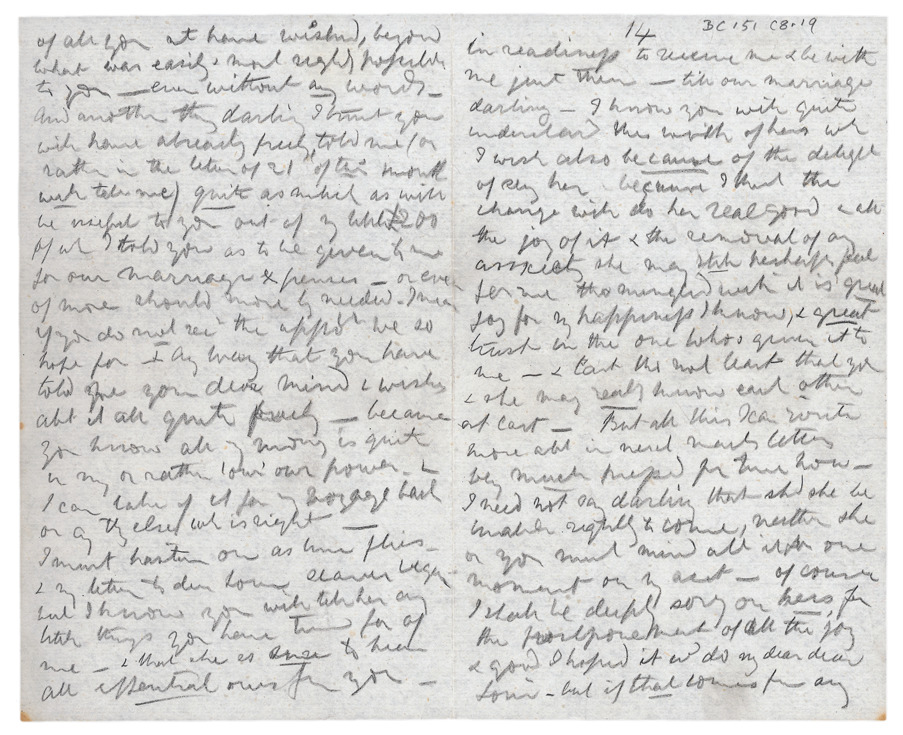 of all you at home wished, beyond
what was easily & most rightly possible
to you — even without any words —
And another thing darling I trust you
will have already freely told me (or
rather in the letter of 21st of this month
will tell me) quite as much as will
be useful to you out of my little £200
of wh I told you as to be given to me
for our marriage expenses — or even
of more should more be needed. I mean
if you do not the we so
hope for — I pray that you have
told me your dear mind & wishes
abt it all quite freely — because
you know all my money is quite
in my or rather 'our' own power — &
I can take of it for my voyage back
or any thg else wh is right —
I must hasten on as time flies —
& my letter to dear Louie
but I know you will tell her any
little things you have time for of
me — & that she is sure to hear
all essential ones from you —
14
BC 151 C8.19
in readiness to receive me & be with
me just then — till our marriage
darling — I know you will quite
understand this wish of hers wh
I wish also because of the delight
of seeing her because I trust the
change will do her real good & all
the joy of it & the removal of any
anxiety she may still perhaps feel
for me tho mingled with it is great
joy for my happiness I know, & great
trust in the one who is given it to
me — & last tho not least that you
& she may really know each other
at last — But all this I can write
more abt in next mails letter
being much pressed for time now —
I need not say darling that shd she be
unable rightly to come, neither she
or you must mind at all it for one
moment on my acct — of course
I shall be deeply sorry on hers, for
the postponement of all the joy
& good I hoped it wd do my dear dear
Louie — but if that comes for any